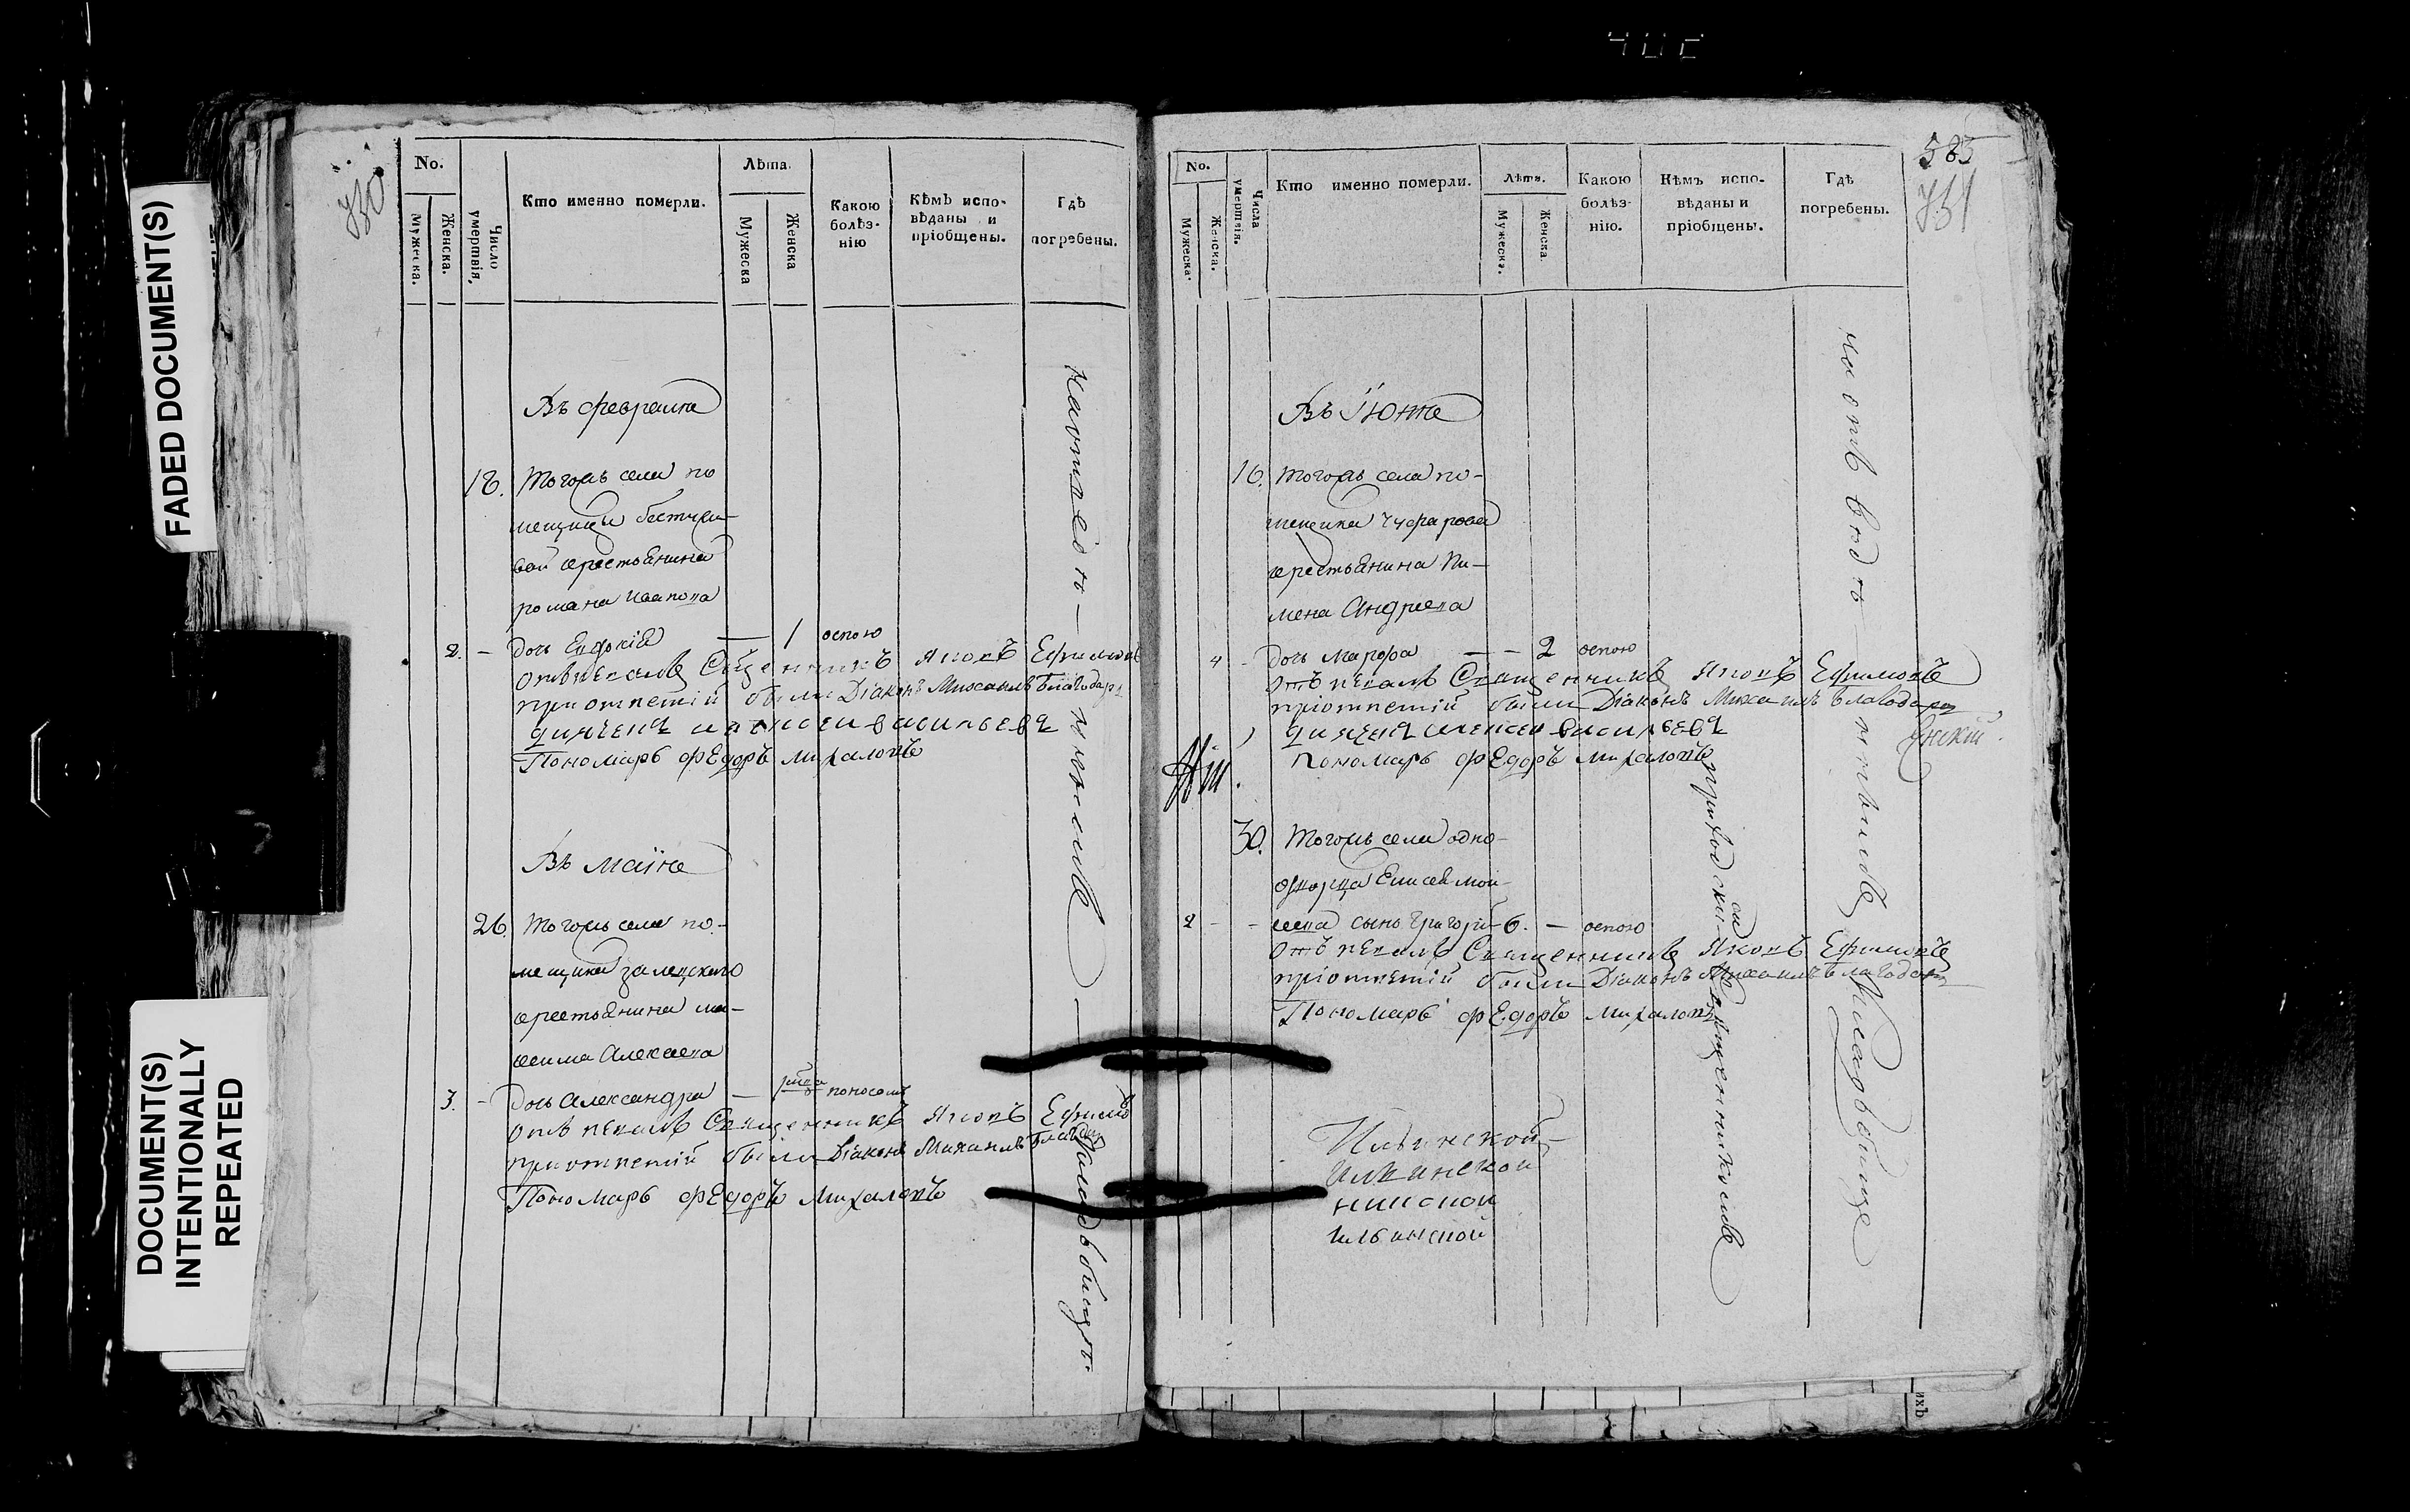 FADED DOCUMENT(S)
DOCUMENT(S)
INTENTIONALLY
REPEATED
No.
Мужеска.
Женска.
Число
умертвія,
Кто именно померли.
Лѣта.
Мужеска
Женска
Какою
болѣз-
нію
Кѣмъ испо-
вѣданы и
пріобщены.
Гдѣ
погребены.
Въ февралѣ
18. Тогожъ села по
мещицы
крестьянина
романа иванова
2. — дочь Евдокія — 1 оспою
отпевалъ Священникъ Яковъ Ефимовъ
приотпетіи были Діаконъ Михаилъ
дьячекъ алексеи васильевъ
Пономарь федоръ михаловъ
Въ маіѣ
26. Тогожъ села по-
мещика залевскаго
крестьянина ма-
ксима Алексеева
3. — дочь Александра — поносомъ
отпевалъ Священникъ Яковъ Ефимо
приотпетіи были Діаконъ Михаилъ
Пономарь федоръ михаловъ
585
731
No.
Мужеска.
Женска.
Числа
умертвія.
Кто именно померли.
Лѣта.
Мужеска.
Женска.
Какою
болѣз-
нію.
Кѣмъ испо-
вѣданы и
пріобщены.
Гдѣ
погребены.
Въ Іюнѣ
16. тогожъ села по-
мещика Чуфарова
крестьянина Пи-
мена Андреева
4 - дочь марфа — — 2 оспою
отъпевалъ Священникъ Яковъ Ефимовъ
приотпетіи были Діаконъ Михаилъ благодаро
внскій
дьячекъ алексеи васильевъ
пономарь федоръ михаловъ
30. Тогожъ села одно-
дворца Елисея мои-
сеева сынъ григорій 6. — оспою
2 - -
отъпевалъ Священникъ Яковъ Ефимовъ
приотпетіи были Діаконъ Михаилъ
Пономарь федоръ михаловъ
приходскимъ священникомъ
Ильинской
Илинской
илинской
ильинской
ихъ